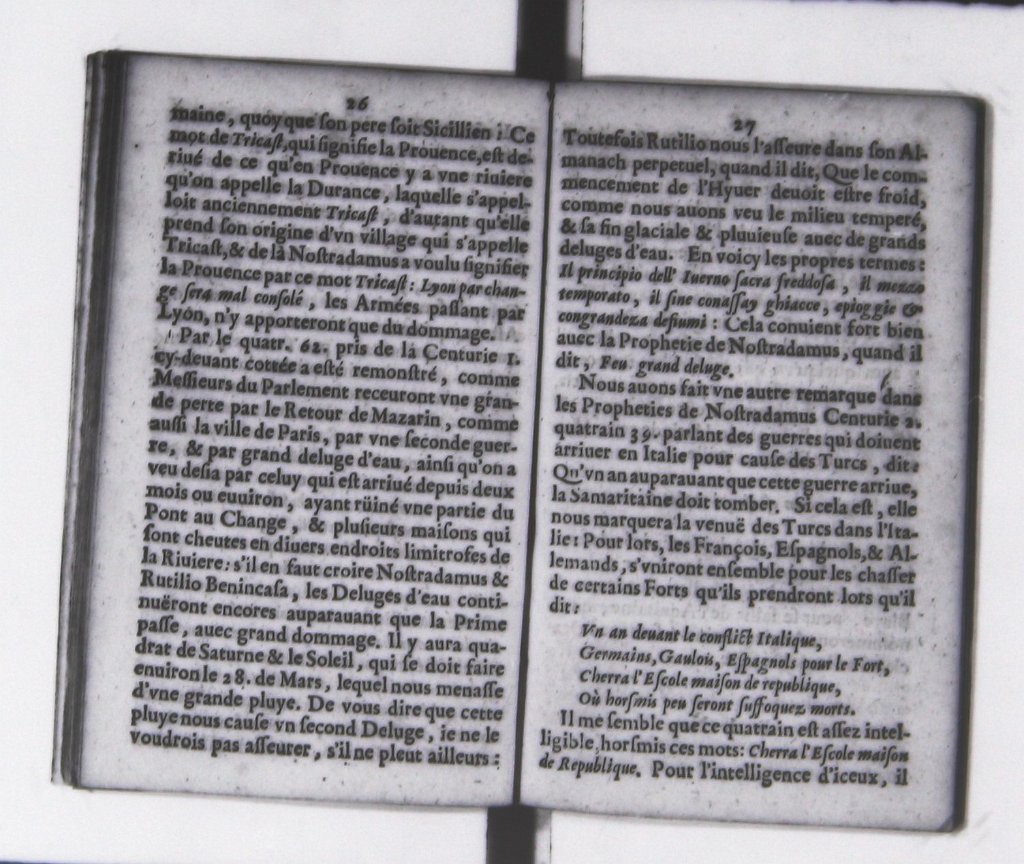 26
maine, quoy que ſon pere ſoit Sicillien; Ce
mot de Tricaſt, qui ſignifie la Prouence, eſt de-
riué de ce qu'en Prouence y a vne riuiere
qu'on appelle la Durance, laquelle s'appel-
loit anciennement Tricaſt, d'autant qu'elle
prend ſon origine d'vn village qui s'appelle
Tricaſt, & de là Noſtradamus a voulu ſignifier
la Prouence par ce mot Tricaſt: Lyon par chan-
ge ſera mal conſolé, les Armées paſſant par
Lyon, n'y apporteront que du dommage.
Par le quatr. 62. pris de la Centurie 1.
cy-deuant cottée a eſté remonſtré, comme
Meſſieurs du Parlement receuront vne gran-
de perte par le Retour de Mazarin, comme
auſſi la ville de Paris, par vne ſeconde guer-
re, & par grand deluge d'eau, ainſi qu'on a
veu deſia par celuy qui eſt arriué depuis deux
mois ou euuiron, ayant rüiné vne partie du
Pont au Change, & pluſieurs maiſons qui
ſont cheutes en diuers endroits limitrofes de
la Riuiere: s'il en faut croire Noſtradamus &
Rutilio Benincaſa, les Deluges d'eau conti-
nuëront encores auparauant que la Prime
paſſe, auec grand dommage. Il y aura qua-
drat de Saturne & le Soleil, qui ſe doit faire
enuiron le 28. de Mars, lequel nous menaſſe
d'vne grande pluye. De vous dire que cette
pluye nous cauſe vn ſecond Deluge, ie ne le
voudrois pas aſſeurer, s'il ne pleut ailleurs:
27
Toutefois Rutilio nous l'aſſeure dans ſon Al-
manach perpetuel, quand il dit, Que le com-
mencement de l'Hyuer deuoit eſtre froid,
comme nous auons veu le milieu temperé,
& ſa fin glaciale & pluuieuſe auec de grands
deluges d'eau. En voicy les propres termes:
Il principio dell' Iuerno ſacra freddoſa, il mezzo
temporato, il fine conaſſay ghiacce, epioggie &
congrandeza deſiumi: Cela conuient fort bien
auec la Prophetie de Noſtradamus, quand il
dit, Feu grand deluge.
Nous auons fait vne autre remarque dans
les Propheties de Noſtradamus Centurie 2.
quatrain 39. parlant des guerres qui doiuent
arriuer en Italie pour cauſe des Turcs, dit:
Qu'vn an auparauant que cette guerre arriue,
la Samaritaine doit tomber. Si cela eſt, elle
nous marquera la venuë des Turcs dans l'Ita-
lie: Pour lors, les François, Eſpagnols, & Al-
lemands, s'vniront enſemble pour les chaſſer
de certains Forts qu'ils prendront lors qu'il
dit:
Vn an deuant le conflict Italique,
Germains, Gaulois, Eſpagnols pour le Fort,
Cherra l'Eſcole maiſon de republique,
Où horſmis peu ſeront ſuffoquez morts.
Il me ſemble que ce quatrain eſt aſſez intel-
ligible, horſmis ces mots: Cherra l'Eſcole maiſon
de Republique. Pour l'intelligence d'iceux, il